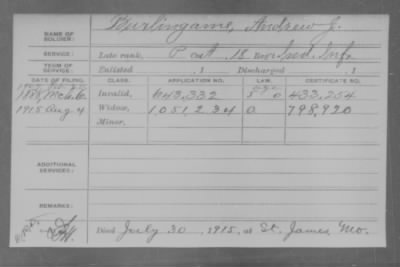 NAME OF SOLDIER: Burlingame, Andrew J.
SERVICE: Late rank, P Co A, 18 Reg't Ind. Inf.
TERM OF SERVICE: Enlisted , 1 Discharged , 1
DATE OF FILING. CLASS. APPLICATION NO. LAW. CERTIFICATE NO.
1888, Mch 6 Invalid, 643,332 433,254
1915 Aug 4 Widow, 1,051,234 O 798,920
Minor,
ADDITIONAL SERVICES:
REMARKS:
Died July 30, 1915, at St. James, Mo.